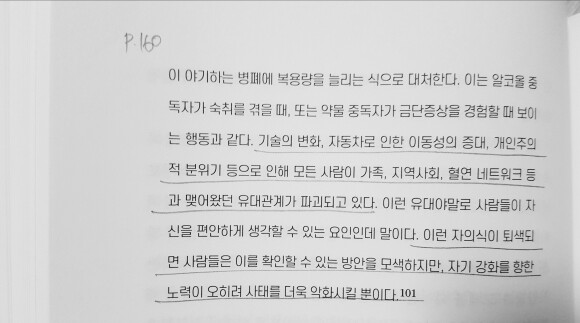 P.160
이 야기하는 병폐에 복용량을 늘리는 식으로 대처한다. 이는 알코올 중
독자가 숙취를 겪을 때, 또는 약물 중독자가 금단증상을 경험할 때 보이
는 행동과 같다. 기술의 변화, 자동차로 인한 이동성의 증대, 개인주의
적 분위기 등으로 인해 모든 사람이 가족, 지역사회, 혈연 네트워크 등
과 맺어왔던 유대관계가 파괴되고 있다. 이런 유대야말로 사람들이 자
신을 편안하게 생각할 수 있는 요인인데 말이다. 이런 자의식이 퇴색되
면 사람들은 이를 확인할 수 있는 방안을 모색하지만, 자기 강화를 향한
노력이 오히려 사태를 더욱 악화시킬 뿐이다.101